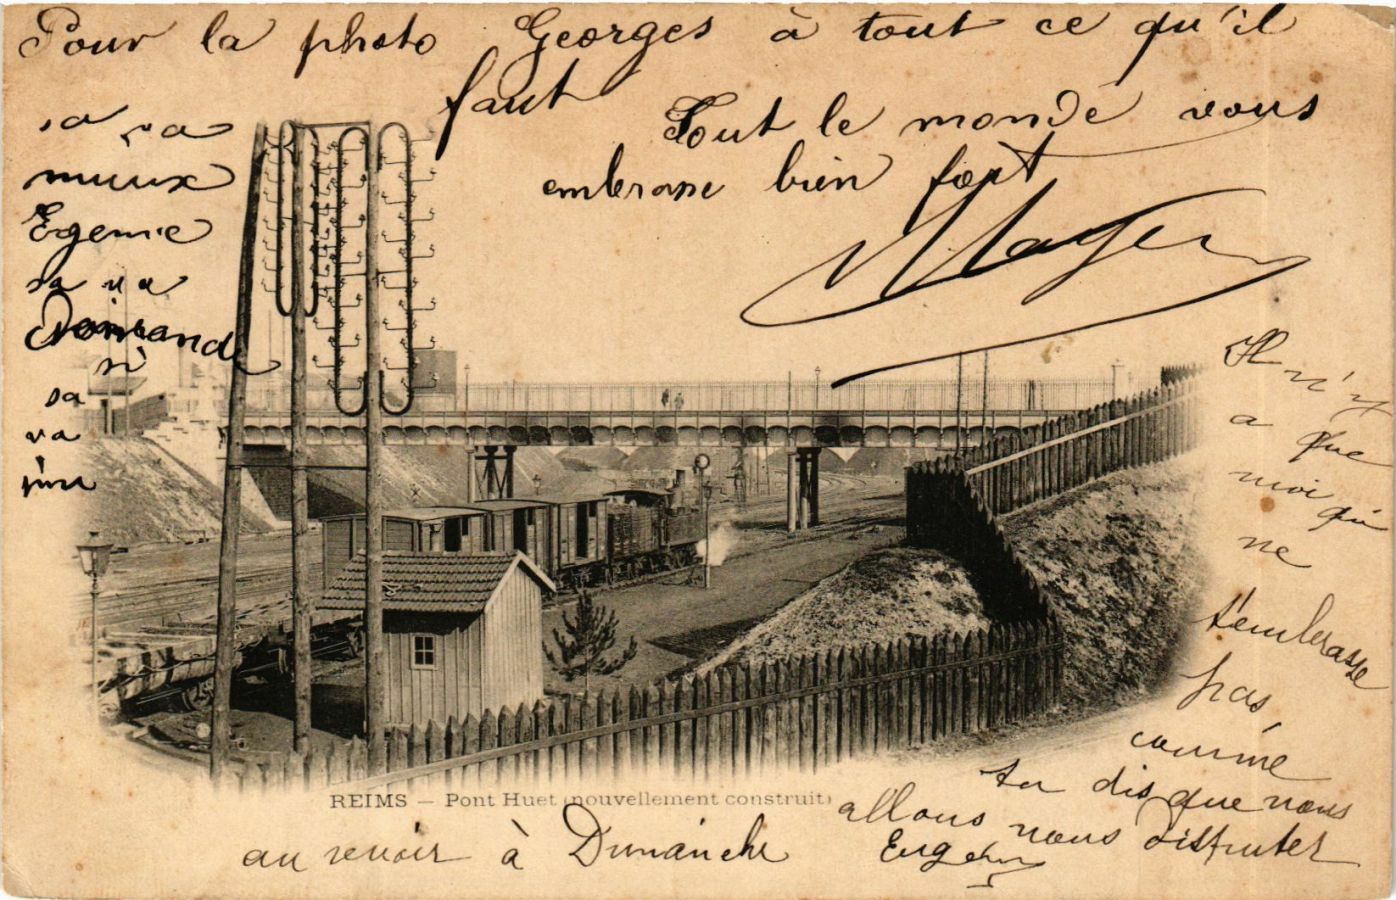 Pour la photo Georges à tout ce qu'il
faut
Tout le monde vous
embrasse bien fort
Mayer
sa va
mieux
Egenie
sa va
si
sa
va
REIMS — Pont Huet (nouvellement construit)
au revoir à Dimanche
Il n'y
a que
moi qui
ne
t'embrasse
pas
comme
tu dis que nous
allons nous disputer